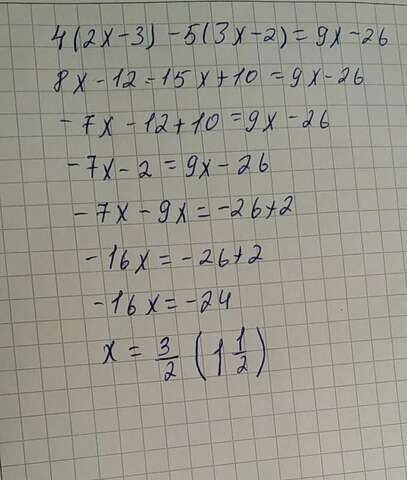 4(2x-3)-5(3x-2)=9x-26
8x-12-15x+10=9x-26
-7x-12+10=9x-26
-7x-2=9x-26
-7x-9x=-26+2
-16x=-26+2
-16x=-24
x=3/2 (1 1/2)